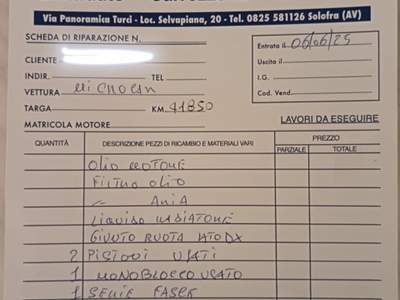 Via Panoramica Turci - Loc. Selvapiana, 20 - Tel. 0825 581126 Solofra (AV)
SCHEDA DI RIPARAZIONE N.
Entrata il 06/06/25
CLIENTE
Uscita il
INDIR. TEL
I.G.
VETTURA
Cod. Vend.
TARGA KM. 41850
MATRICOLA MOTORE
LAVORI DA ESEGUIRE
QUANTITÀ DESCRIZIONE PEZZI DI RICAMBIO E MATERIALI VARI PREZZO
PARZIALE TOTALE
OLIO MOTORE
FILTRO OLIO
" ARIA
LIQUIDO RADIATORE
GIUNTO RUOTA LATO DX
2 PISTONI USATI
1 MONOBLOCCO USATO
1 SERIE FASCE